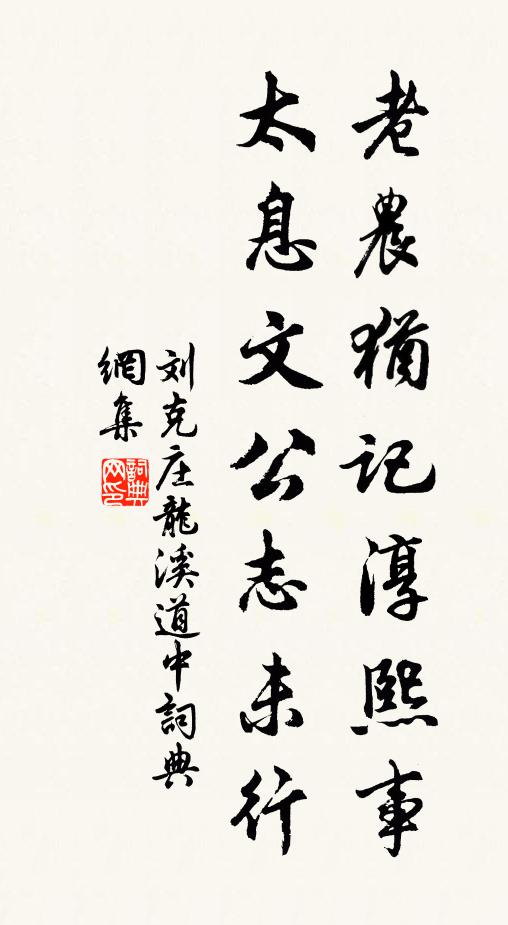 老農猶记淳熙事
太息文公志未行
刘克庄龍溪道中詞典
網集
詞典网印